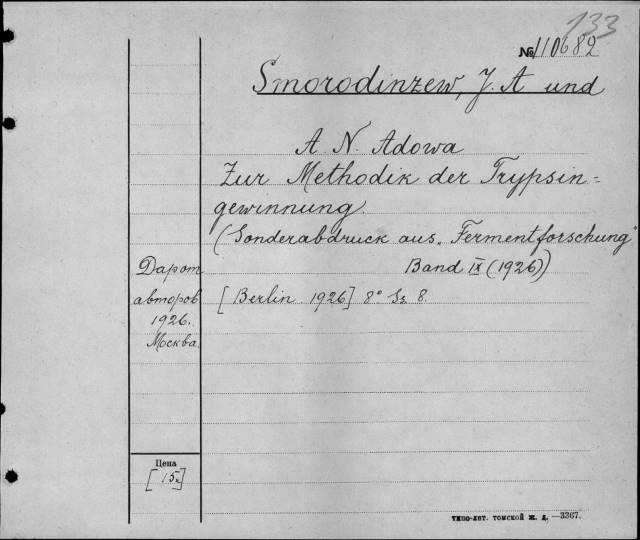 133
№ 110682
Smorodinzew, J. A und
A. N. Adowa
Zur Methodik der Trypsin=
gewinnung.
(Sonderabdruck aus „Fermentforschung"
Band IX (1926))
Дар от
авторов
1926.
Москва.
[Berlin 1926] 8° Ss. 8.
Цена
[15к]
ТИПО-ЛИТ. ТОМСКОЙ Ж. Д. —3367.